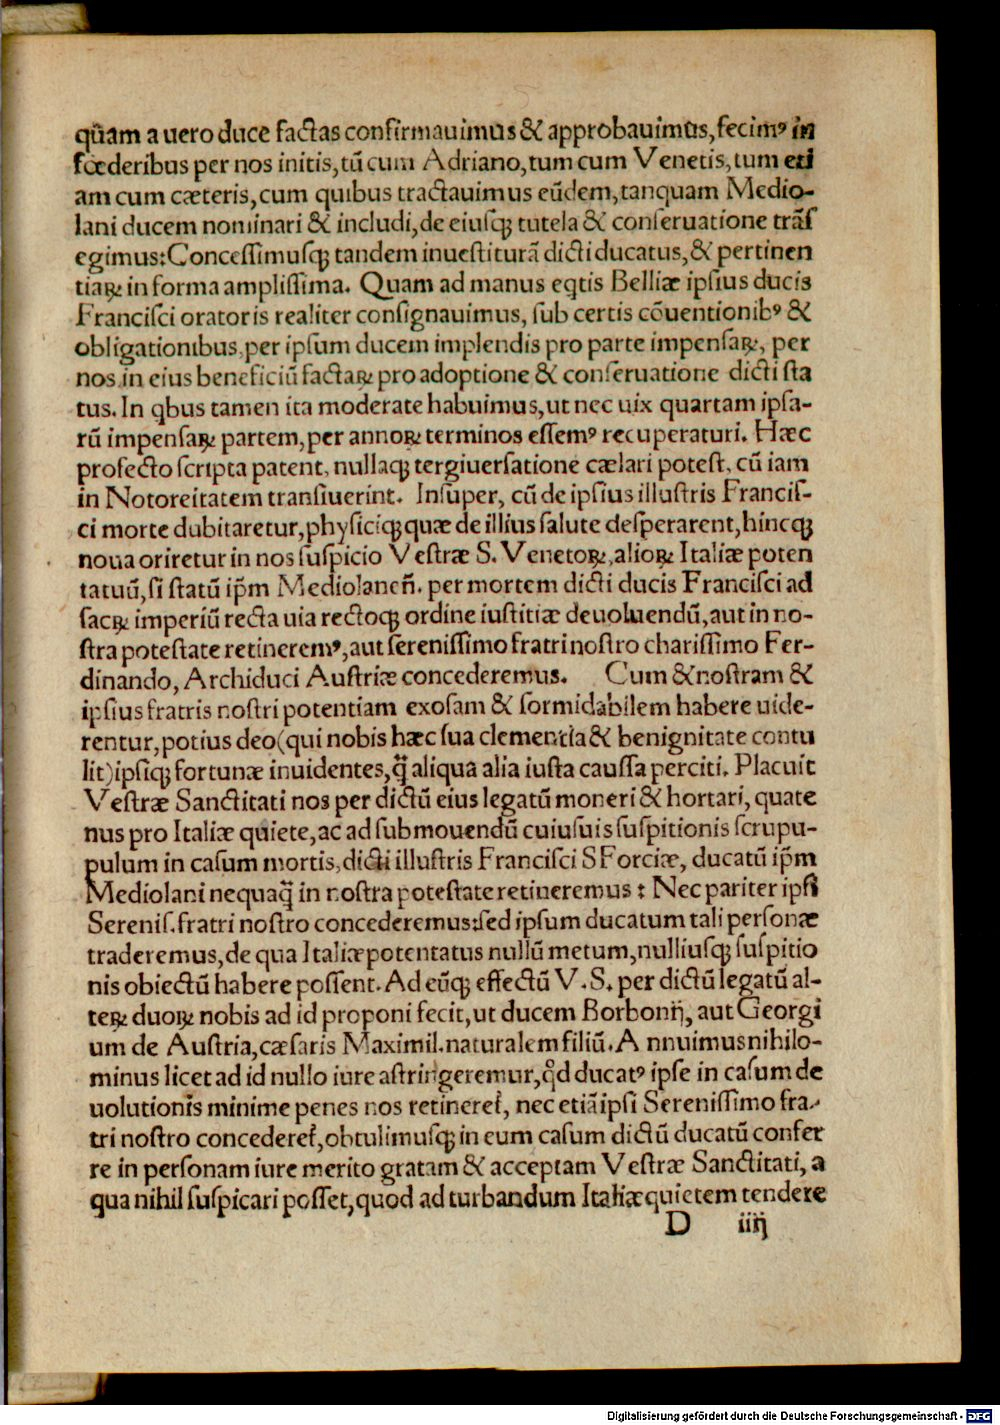 quā̃m a uero duce factas confirmauimus & approbauimus, fecimꝰ in
fœderibus per nos initis, tū cum Adriano, tum cum Venetis, tum eti
am cum cæteris, cum quibus tractauimus eūdem, tanquam Medio-
lani ducem nominari & includi, de eiusqꝫ tutela & conseruatione trāſ
egimus: Conceſſimusqꝫ tandem inueſtiturā dicti ducatus, & pertinen
tiaꝝ in forma ampliſſima. Quam ad manus eq̇tis Belliæ ipſius ducis
Franciſci oratoris realiter conſignauimus, ſub certis cōuentionibꝰ &
obligationibus, per ipſum ducem implendis pro parte impenſaꝝ, per
nos in eius beneficiū factaꝝ pro adoptione & conſeruatione dicti ſta
tus. In q̇bus tamen ita moderate habuimus, ut nec uix quartam ipſa-
rū impenſaꝝ partem, per annoꝝ terminos eſſemꝰ recuperaturi. Hæc
profecto ſcripta patent, nullaqꝫ tergiuerſatione cælari poteſt, cū iam
in Notoreitatem tranſiuerint. Inſuper, cū de ipſius illuſtris Franciſ-
ci morte dubitaretur, phyſiciqꝫ quæ de illius ſalute deſperarent, hincqꝫ
noua oriretur in nos ſuſpicio Veſtræ S. Venetoꝝ, alioꝝ Italiæ poten
tatuū, ſi ſtatū ip̄m Mediolanen̄. per mortem dicti ducis Franciſci ad
ſacꝝ imperiū recta uia rectoqꝫ ordine iuſtitiæ deuoluendū, aut in no-
ſtra poteſtate retineremꝰ, aut ſereniſſimo fratri noſtro chariſſimo Fer-
dinando, Archiduci Auſtriæ concederemus. Cum & noſtram &
ipſius fratris noſtri potentiam exoſam & formidabilem habere uide-
rentur, potius deo (qui nobis hæc ſua clementia & benignitate contu
lit) ipſiqꝫ fortunæ inuidentes, q̄̃ aliqua alia iuſta cauſſa perciti. Placuit
Veſtræ Sanctitati nos per dictū eius legatū moneri & hortari, quate
nus pro Italiæ quiete, ac ad ſubmouendū cuiuſuis ſuſpitionis ſcrupu-
pulum in caſum mortis, dicti illuſtris Franciſci SForciæ, ducatū ip̄m
Mediolani nequaq̄̃ in noſtra poteſtate retineremus: Nec pariter ipſi
Sereniſ. fratri noſtro concederemus: ſed ipſum ducatum tali perſonæ
traderemus, de qua Italiæ potentatus nullū metum, nulliuſqꝫ ſuſpitio
nis obiectū habere poſſent. Ad eūqꝫ effectū V. S. per dictū legatū al-
teꝝ duoꝝ nobis ad id proponi fecit, ut ducem Borbonij, aut Georgi
um de Auſtria, cæſaris Maximil. naturalem filiū. Annuimus nihilo-
minus licet ad id nullo iure aſtringeremur, qd̓ ducatꝰ ipſe in caſum de
uolutionis minime penes nos retineret̃, nec etiā ipſi Sereniſſimo fra-
tri noſtro concederet̃, obtulimuſqꝫ in eum caſum dictū ducatū confer
re in perſonam iure merito gratam & acceptam Veſtræ Sanctitati, a
qua nihil ſuſpicari poſſet, quod ad turbandum Italiæ quietem tendere
D iiij
Digitalisierung gefördert durch die Deutsche Forschungsgemeinschaft - DFG